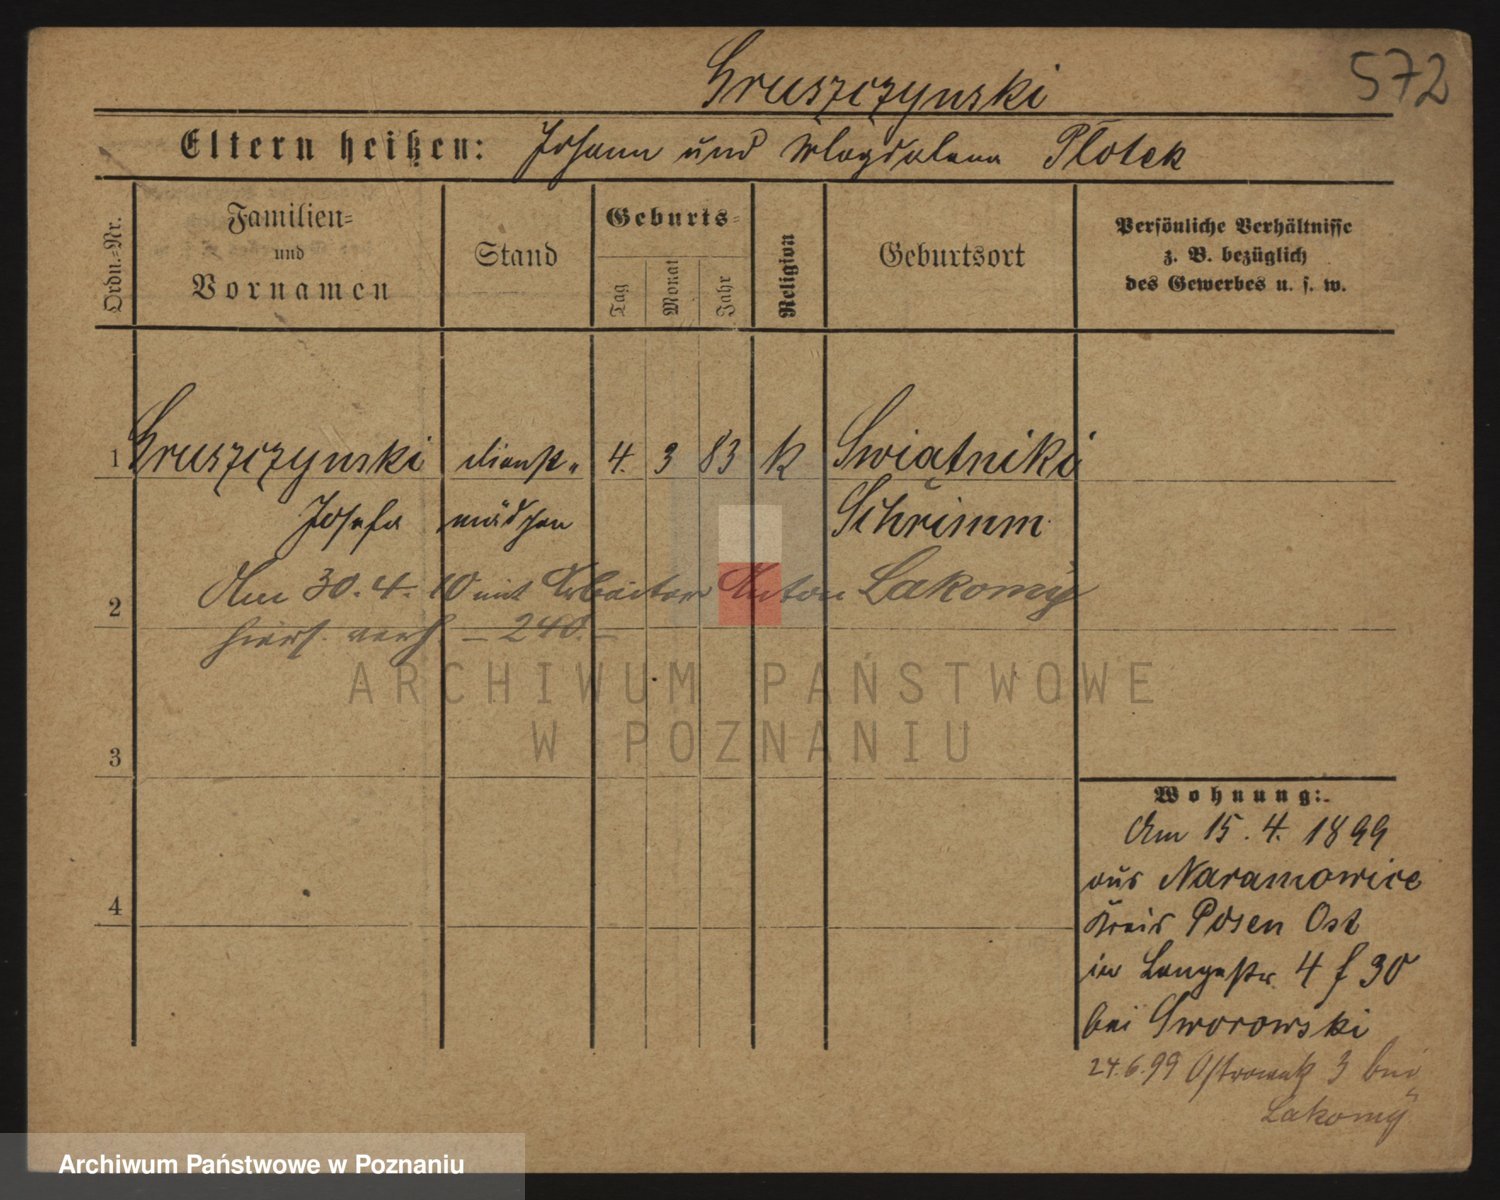 Gruszczynski
572
Eltern heißen: Johann und Magdalena Plotek
Ordn.=Nr.
Familien=
und
Vornamen
Stand
Geburts=
Tag
Monat
Jahr
Religion
Geburtsort
Persönliche Verhältnisse
z. B. bezüglich
des Gewerbes u. s. w.
1 Gruszczynski dienst= 4. 3 83 k Swiątniki
Josefa mädchen Schrimm
2 Am 30.4.10 mit Arbeiter Anton Lakomy
hiers. verh. – 240. –
ARCHIWUM PAŃSTWOWE
W POZNANIU
3
4
Wohnung:
Am 15.4.1899
aus Naramowice
Kreis Posen Ost
in Langestr. 4 f 30
bei Sworowski
24.6.99 Ostrowek 3 bei
Lakomy
Archiwum Państwowe w Poznaniu